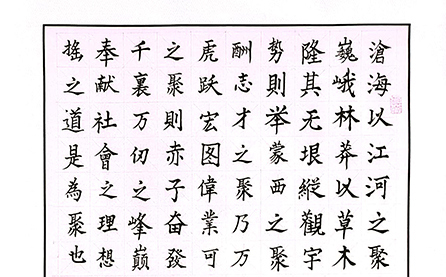 滄海以江河之聚
巍峨林莽以草木
隆其无垠縱觀宇
势則举蒙西之聚
酬志才之聚乃万
虎跃宏图偉業可
之聚則赤子奋發
千裏万仞之峰巅
奉献社會之理想
摇之道是為聚也